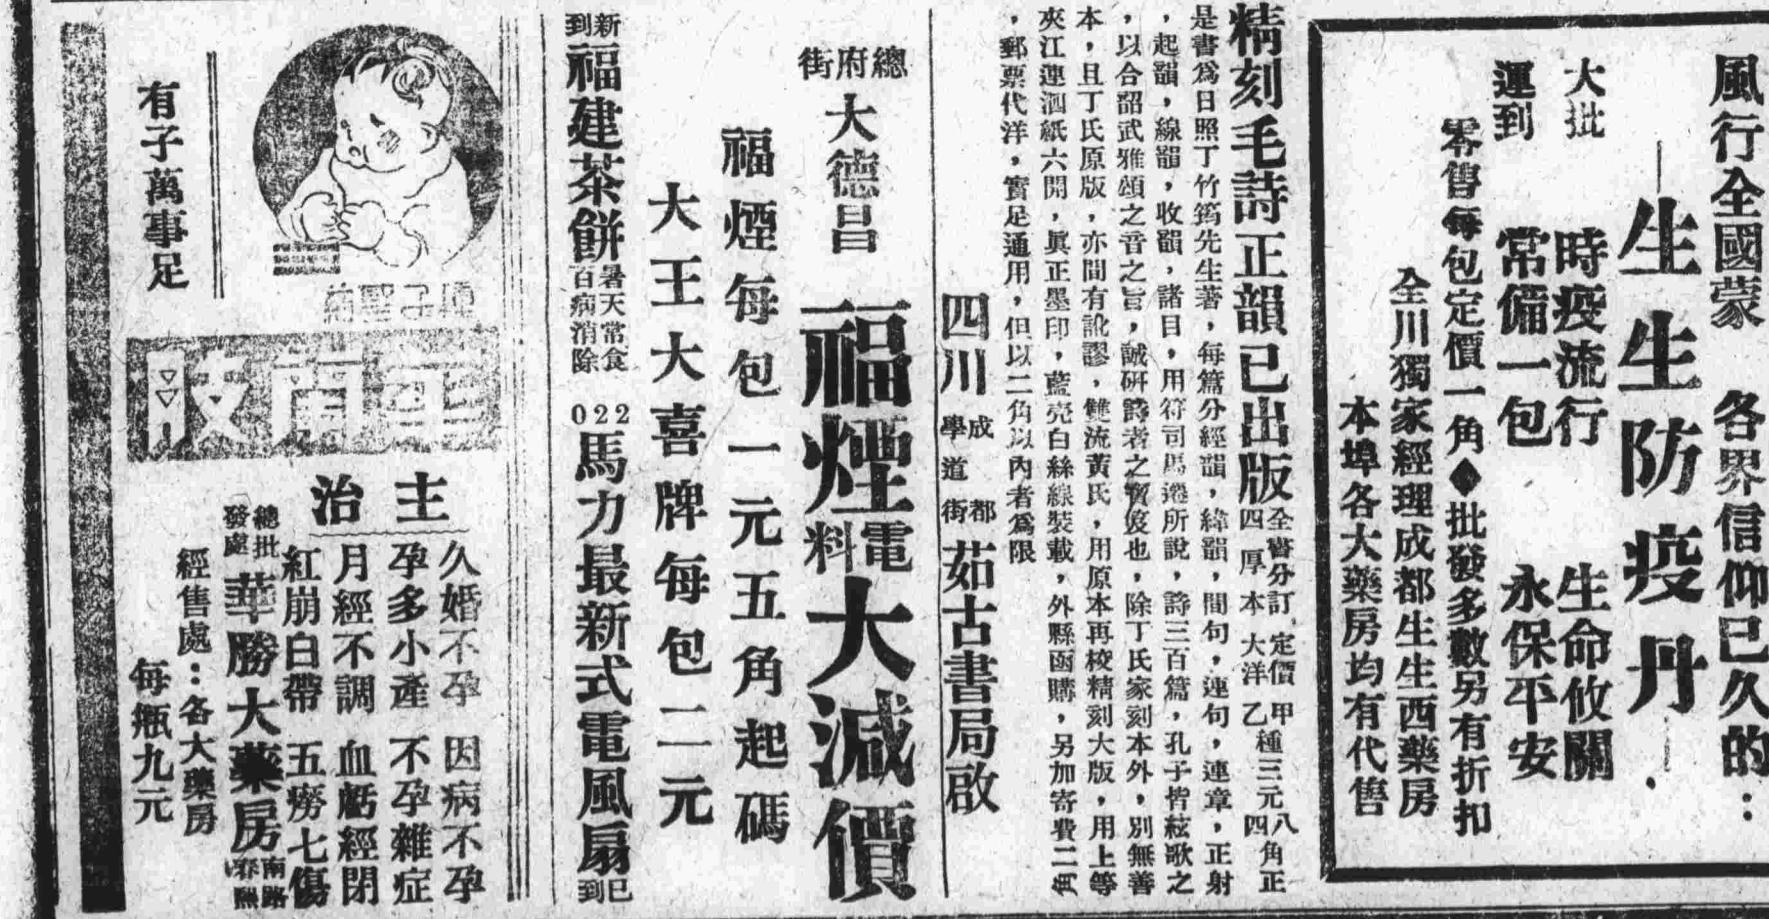 風行全國蒙 各界信仰已久的：
生生防疫丹
大批
運到
時疫流行 生命攸關
常備一包 永保平安
零售每包定價一角◆批發多數另有折扣
全川獨家經理成都生生西藥房
本埠各大藥房均有代售
精刻毛詩正韻已出版
全書分訂 定價 甲 八
四厚本 大洋 乙種三元四角正
是書爲日照丁竹筠先生著，每篇分經韻，緯韻，間句，連句，連章，正射
，起韻，線韻，收韻，諸目，用符司馬遷所說，詩三百篇，孔子皆絃歌之
，以合韶武雅頌之音之旨，誠研詩者之寳筏也，除丁氏家刻本外，別無善
本，且丁氏原版，亦間有訛謬，雙流黃氏，用原本再校精刻大版，用上等
夾江連泗紙六開，眞正墨印，藍壳白絲線裝載，外縣函購，另加寄費二角
，郵票代洋，實足通用，但以二角以內者爲限
四川 成都學道街 茹古書局啟
總府街
大德昌 福煙電料大減價
福煙每包一元五角起碼
大王大喜牌每包二元
新到福建茶餅 暑天常食百病消除
022馬力最新式電風扇已到
有子萬事足
種子聖
主治
久婚不孕 因病不孕
孕多小產 不孕雜症
月經不調 血虧經閉
紅崩白帶 五癆七傷
總批發處 華勝大藥房 春熙南路
經售處：各大藥房
每瓶九元